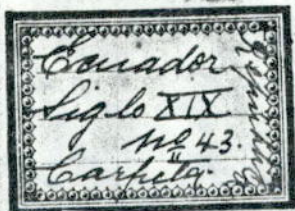 Ecuador
Siglo XIX
Nº 43.
Carpeta.